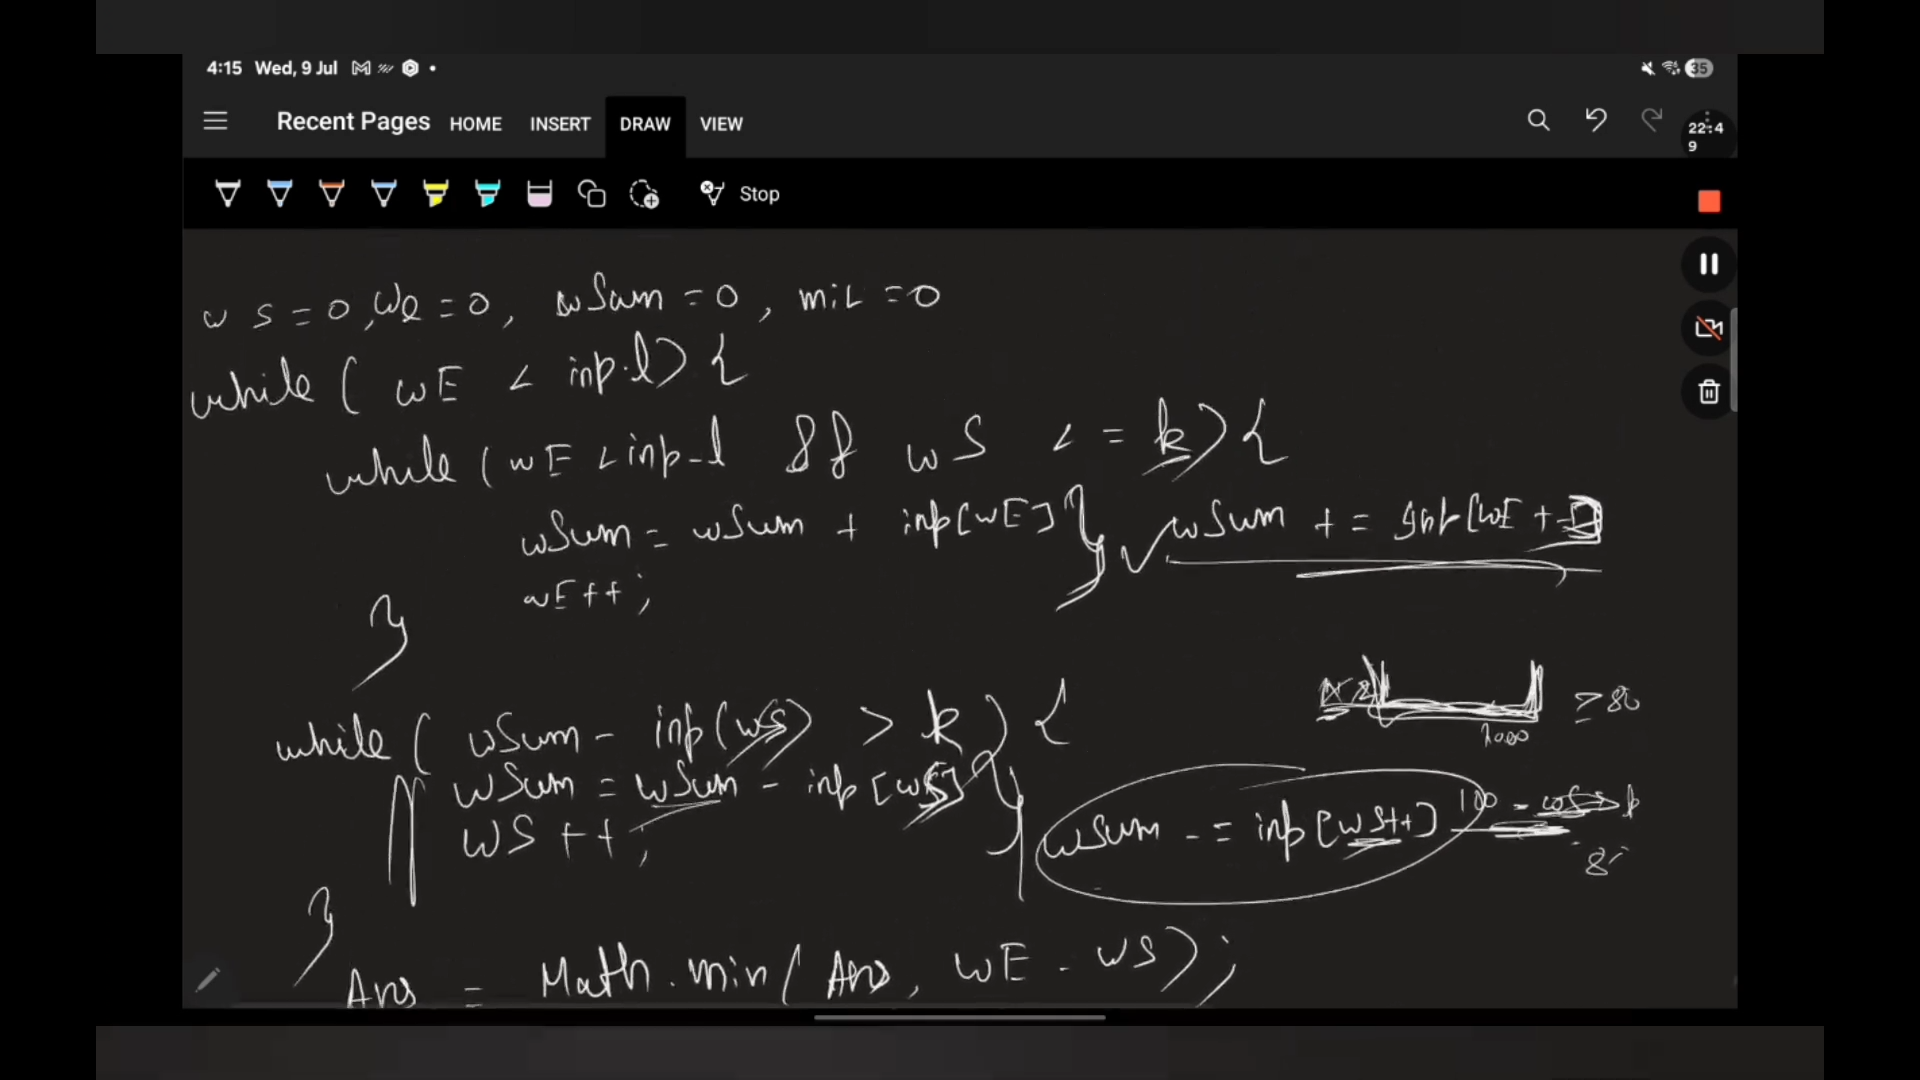 4:15 Wed, 9 Jul
35
Recent Pages HOME INSERT DRAW VIEW
22:49
Stop
ws=0, we=0, wSum=0, mil=0
while ( wE < inp.l) {
while ( wE < inp.l && wS <= k) {
wSum = wSum + inp[wE] } wSum += inp[wE++]
wE++;
}
≥ 80
while ( wSum - inp(ws) > k ) {
wSum = wSum - inp[ws] }
wSum -= inp[ws++] 100 -
WS++;
}
Ans = Math.min( Ans, wE - wS);